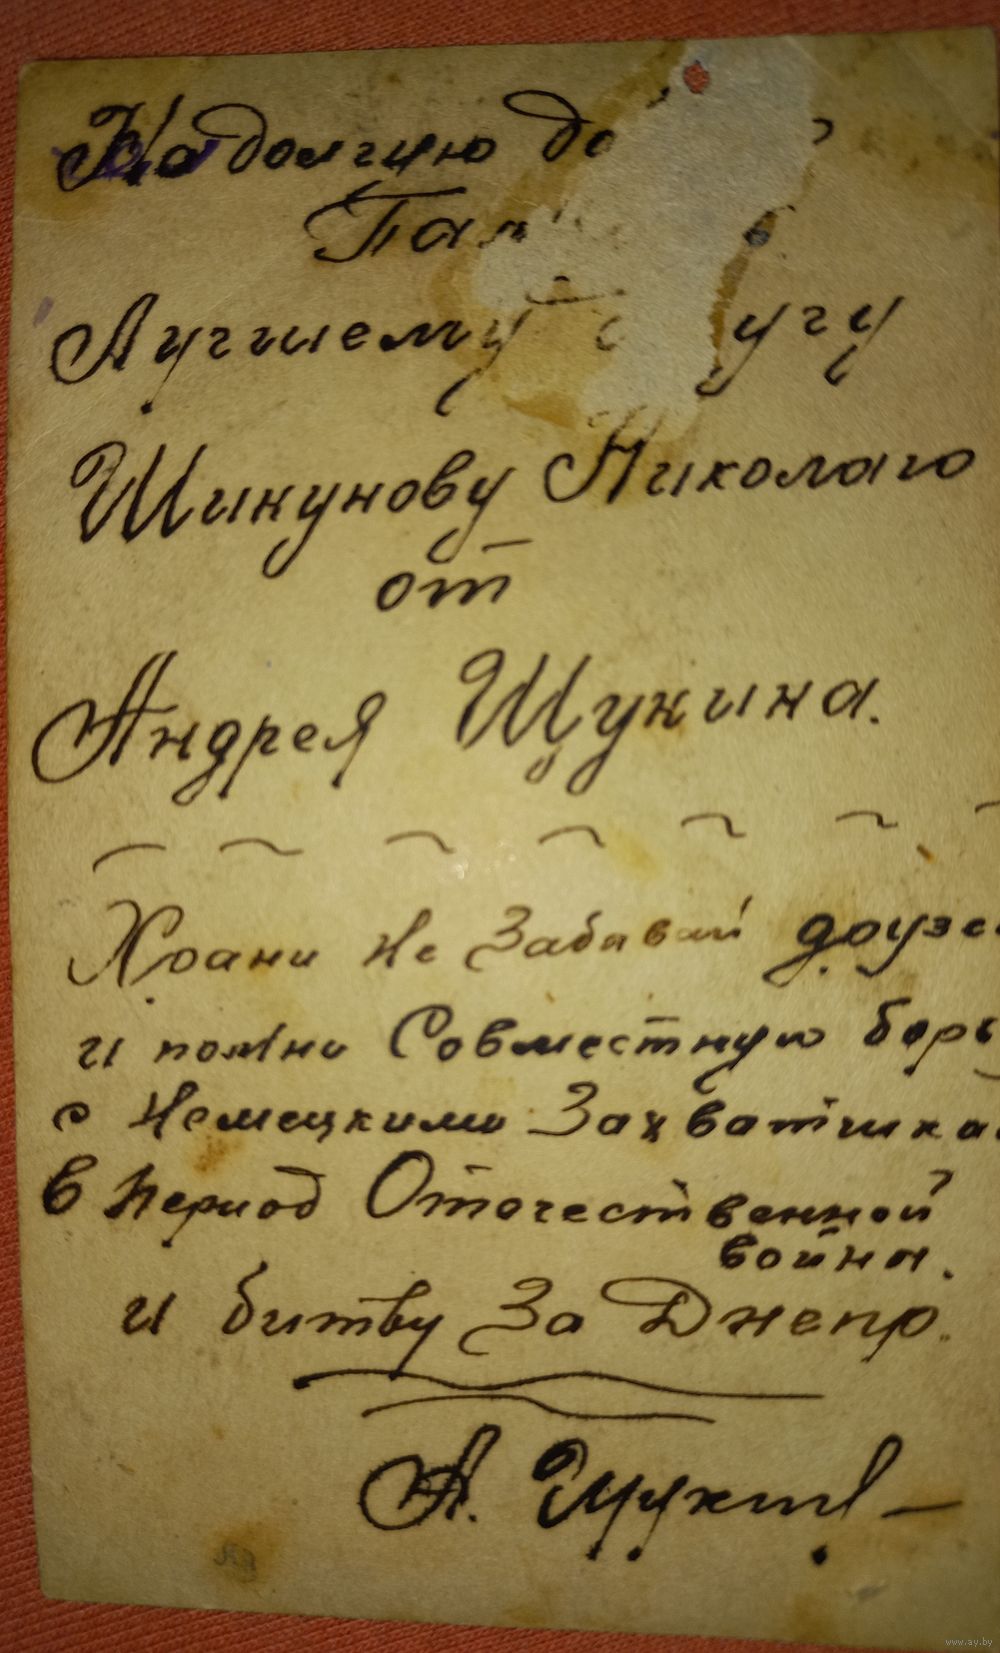 На долгую до
Пам
Лучшему другу
Шикунову Николаю
от
Андрея Щукина.
Храни не забывай друзе
и помни Совместную борь
с Немецкими Захватчика
в период Отечественной
войны.
и битву За Днепр.
А. Щукин
www.ay.by